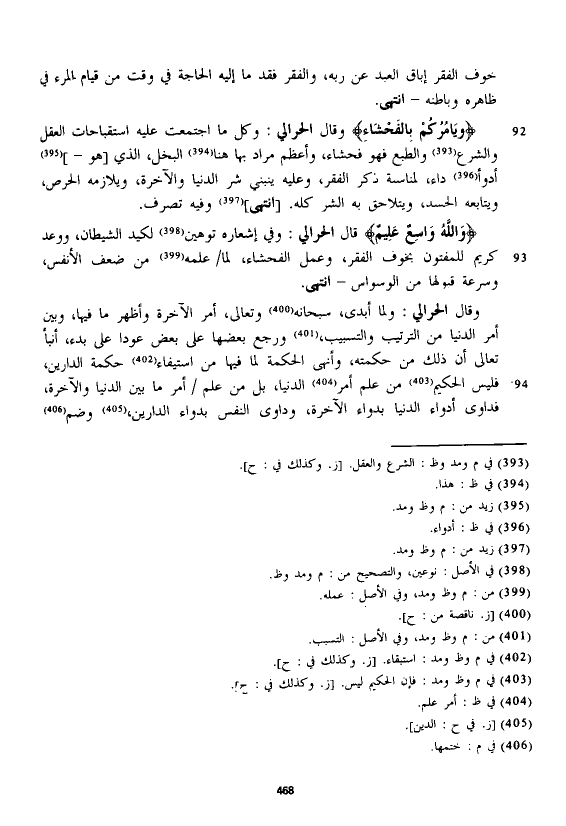 خوف الفقر إباق العبد عن ربه، والفقر فقد ما إليه الحاجة في وقت من قيام المرء في
ظاهره وباطنه – انتهى.
92 ﴿ويَامُرُكُمْ بِالفَحْشَاءِ﴾ وقال الحرالي : وكل ما اجتمعت عليه استقباحات العقل
والشرع(393) والطبع فهو فحشاء، وأعظم مراد بها هنا(394) البخل، الذي [هو – ](395)
أدوأ(396) داء، لمناسبة ذكر الفقر، وعليه ينبني شر الدنيا والآخرة، ويلازمه الحرص،
ويتابعه الحسد، ويتلاحق به الشر كله. [انتهى](397) وفيه تصرف.
﴿وَاللَّهُ وَاسِعٌ عَلِيمٌ﴾ قال الحرالي : وفي إشعاره توهين(398) لكيد الشيطان، ووعد
93 كريم للمفتون بخوف الفقر، وعمل الفحشاء، لما/ علمه(399) من ضعف الأنفس،
وسرعة قبولها من الوسواس – انتهى.
وقال الحرالي : ولما أبدى، سبحانه(400) وتعالى، أمر الآخرة وأظهر ما فيها، وبين
أمر الدنيا من الترتيب والتسبيب،(401) ورجع بعضها على بعض عودا على بدء، أنبأ
تعالى أن ذلك من حكمته، وأنهى الحكمة لما فيها من استيفاء(402) حكمة الدارين،
94 فليس الحكيم(403) من علم أمر(404) الدنيا، بل من علم / أمر ما بين الدنيا والآخرة،
فداوى أدواء الدنيا بدواء الآخرة، وداوى النفس بدواء الدارين،(405) وضم(406)
(393) في م ومد وظ : الشرع والعقل. [ز. وكذلك في : ح].
(394) في ظ : هذا.
(395) زيد من : م وظ ومد.
(396) في ظ : أدواء.
(397) زيد من : م وظ ومد.
(398) في الأصل : نوعين، والتصحيح من : م ومد وظ.
(399) من : م وظ ومد، وفي الأصل : عمله.
(400) [ز. ناقصة من : ح].
(401) من : م وظ ومد، وفي الأصل : التسبب.
(402) في م وظ ومد : استبقاء. [ز. وكذلك في : ح].
(403) في م وظ ومد : فإن الحكيم ليس. [ز. وكذلك في : ح].
(404) في ظ : أمر علم.
(405) [ز. في ح : الدين].
(406) في م : ختمها.
468